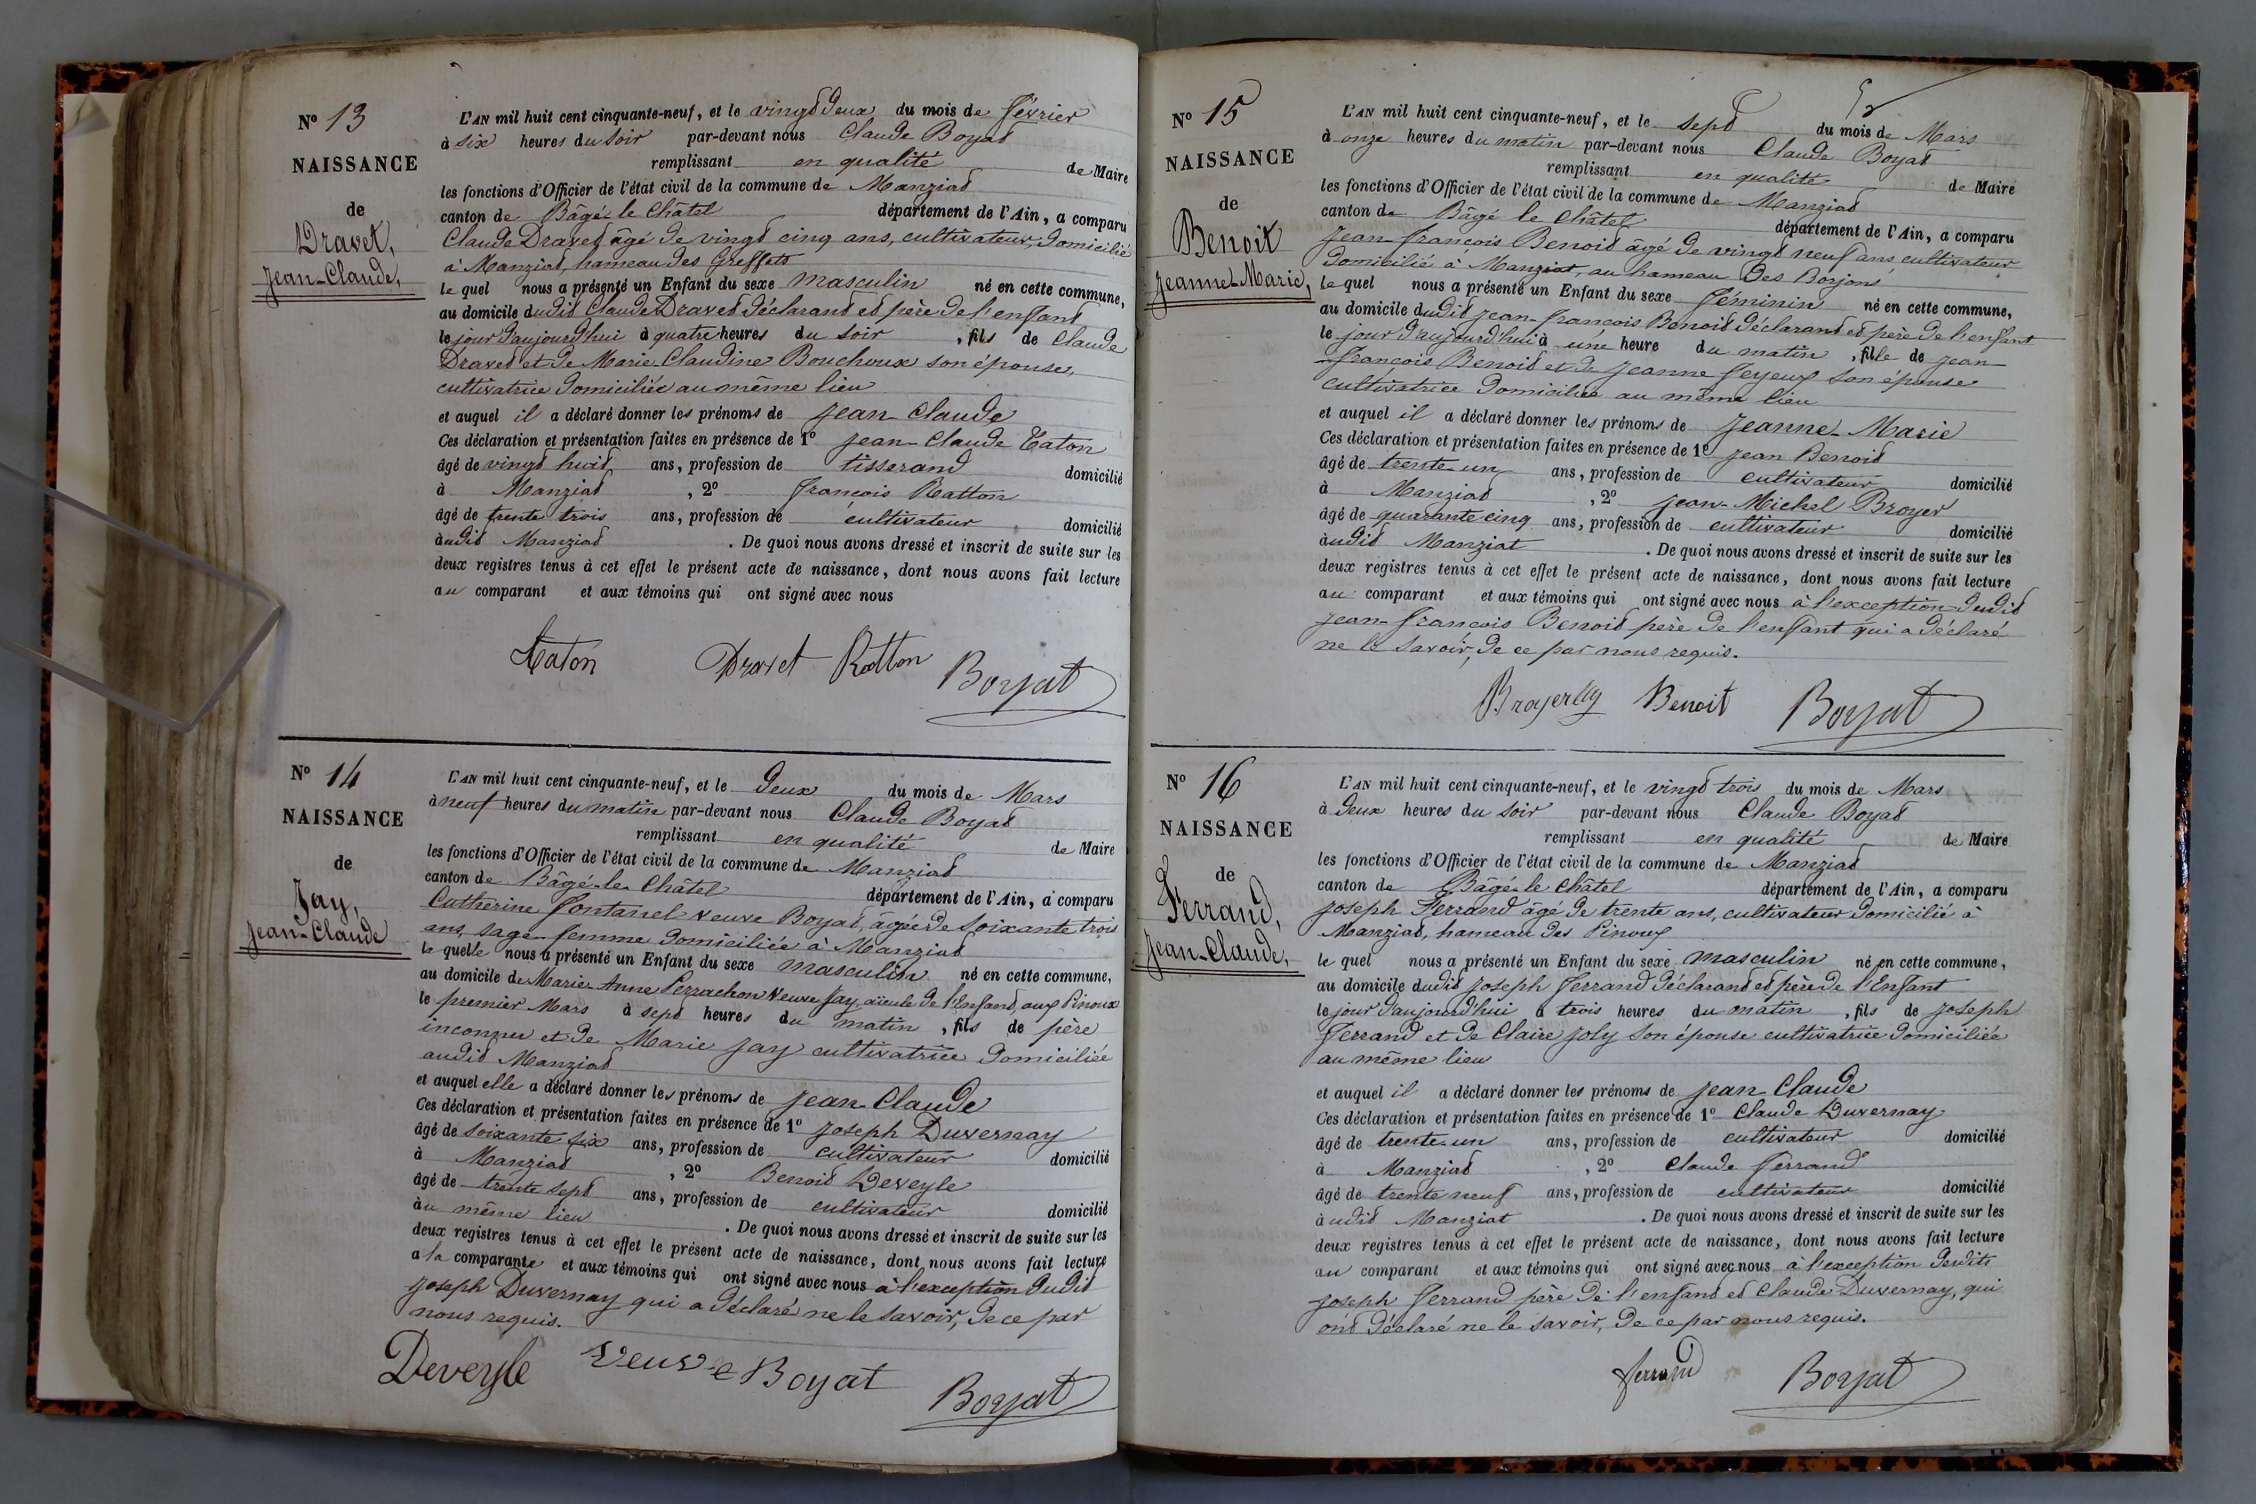 N° 13
NAISSANCE
de
Dravet,
Jean-Claude,
L'AN mil huit cent cinquante-neuf, et le vingt deux du mois de février
à six heures du soir par-devant nous Claude Boyat
remplissant en qualité de Maire
les fonctions d'Officier de l'état civil de la commune de Manziat
canton de Bâgé-le Châtel département de l'Ain, a comparu
Claude Dravet âgé de vingt cinq ans, cultivateur, domicilié
à Manziat, hameau des Greffets
le quel nous a présenté un Enfant du sexe masculin né en cette commune,
au domicile dudit Claude Dravet déclarant et père de l'enfant
le jour d'aujourd'hui à quatre heures du soir, fils de Claude
Dravet et de Marie-Claudine Bouchoux son épouse
cultivatrice domiciliée au même lieu
et auquel il a déclaré donner les prénoms de Jean-Claude
Ces déclaration et présentation faites en présence de 1° Jean-Claude Caton
âgé de vingt huit ans, profession de tisserand domicilié
à Manziat, 2° François Ratton
âgé de trente trois ans, profession de cultivateur domicilié
audit Manziat. De quoi nous avons dressé et inscrit de suite sur les
deux registres tenus à cet effet le présent acte de naissance, dont nous avons fait lecture
au comparant et aux témoins qui ont signé avec nous
Caton Dravet Ratton Boyat
N° 14
NAISSANCE
de
Jay,
Jean-Claude
L'AN mil huit cent cinquante-neuf, et le deux du mois de Mars
à neuf heures du matin par-devant nous Claude Boyat
remplissant en qualité de Maire
les fonctions d'Officier de l'état civil de la commune de Manziat
canton de Bâgé-le Châtel département de l'Ain, a comparu
Catherine Fontanel veuve Boyat, âgée de soixante trois
ans, sage-femme domiciliée à Manziat
le quelle nous a présenté un Enfant du sexe masculin né en cette commune,
au domicile de Marie-Anne Perrachon veuve Jay, aïeule de l'Enfant, aux Pinoux
le premier Mars à sept heures du matin, fils de père
inconnu et de Marie Jay cultivatrice domiciliée
audit Manziat
et auquel elle a déclaré donner les prénoms de Jean-Claude
Ces déclaration et présentation faites en présence de 1° Joseph Duvernay
âgé de soixante six ans, profession de cultivateur domicilié
à Manziat, 2° Benoit Deveyle
âgé de trente sept ans, profession de cultivateur domicilié
au même lieu. De quoi nous avons dressé et inscrit de suite sur les
deux registres tenus à cet effet le présent acte de naissance, dont nous avons fait lecture
a la comparante et aux témoins qui ont signé avec nous à l'exception dudit
Joseph Duvernay qui a déclaré ne le savoir, de ce par
nous requis.
Deveyle veuve Boyat Boyat
N° 15
NAISSANCE
de
Benoit
Jeanne-Marie,
L'AN mil huit cent cinquante-neuf, et le sept du mois de Mars
à onze heures du matin par-devant nous Claude Boyat
remplissant en qualité de Maire
les fonctions d'Officier de l'état civil de la commune de Manziat
canton de Bâgé le Châtel département de l'Ain, a comparu
Jean-François Benoit âgé de vingt neuf ans cultivateur
domicilié à Manziat, au hameau Des Borjons
le quel nous a présenté un Enfant du sexe féminin né en cette commune,
au domicile dudit Jean-François Benoit déclarant et père de l'enfant
le jour d'aujourd'hui à une heure du matin, fille de Jean-
François Benoit et de Jeanne Feyeux son épouse
cultivatrice domiciliée au même lieu
et auquel il a déclaré donner les prénoms de Jeanne-Marie
Ces déclaration et présentation faites en présence de 1° Jean Benoit
âgé de trente-un ans, profession de cultivateur domicilié
à Manziat, 2° Jean-Michel Broyer
âgé de quarante cinq ans, profession de cultivateur domicilié
audit Manziat. De quoi nous avons dressé et inscrit de suite sur les
deux registres tenus à cet effet le présent acte de naissance, dont nous avons fait lecture
au comparant et aux témoins qui ont signé avec nous à l'exception dudit
Jean-François Benoit père de l'enfant qui a déclaré
ne le savoir, de ce par nous requis.
Broyer Benoit Boyat
N° 16
NAISSANCE
de
Ferrand,
Jean-Claude,
L'AN mil huit cent cinquante-neuf, et le vingt trois du mois de Mars
à deux heures du soir par-devant nous Claude Boyat
remplissant en qualité de Maire
les fonctions d'Officier de l'état civil de la commune de Manziat
canton de Bâgé-le Châtel département de l'Ain, a comparu
Joseph Ferrand âgé de trente ans, cultivateur domicilié à
Manziat, hameau des Pinoux
le quel nous a présenté un Enfant du sexe masculin né en cette commune,
au domicile dudit Joseph Ferrand déclarant et père de l'Enfant
le jour d'aujourd'hui à trois heures du matin, fils de Joseph
Ferrand et de Claire Joly son épouse cultivatrice domiciliée
au même lieu
et auquel il a déclaré donner les prénoms de Jean-Claude
Ces déclaration et présentation faites en présence de 1° Claude Duvernay
âgé de trente-un ans, profession de cultivateur domicilié
à Manziat, 2° Claude Ferrand
âgé de trente neuf ans, profession de cultivateur domicilié
audit Manziat. De quoi nous avons dressé et inscrit de suite sur les
deux registres tenus à cet effet le présent acte de naissance, dont nous avons fait lecture
au comparant et aux témoins qui ont signé avec nous à l'exception desdits
Joseph Ferrand père de l'enfant et Claude Duvernay, qui
ont déclaré ne le savoir, de ce par nous requis.
ferrand Boyat